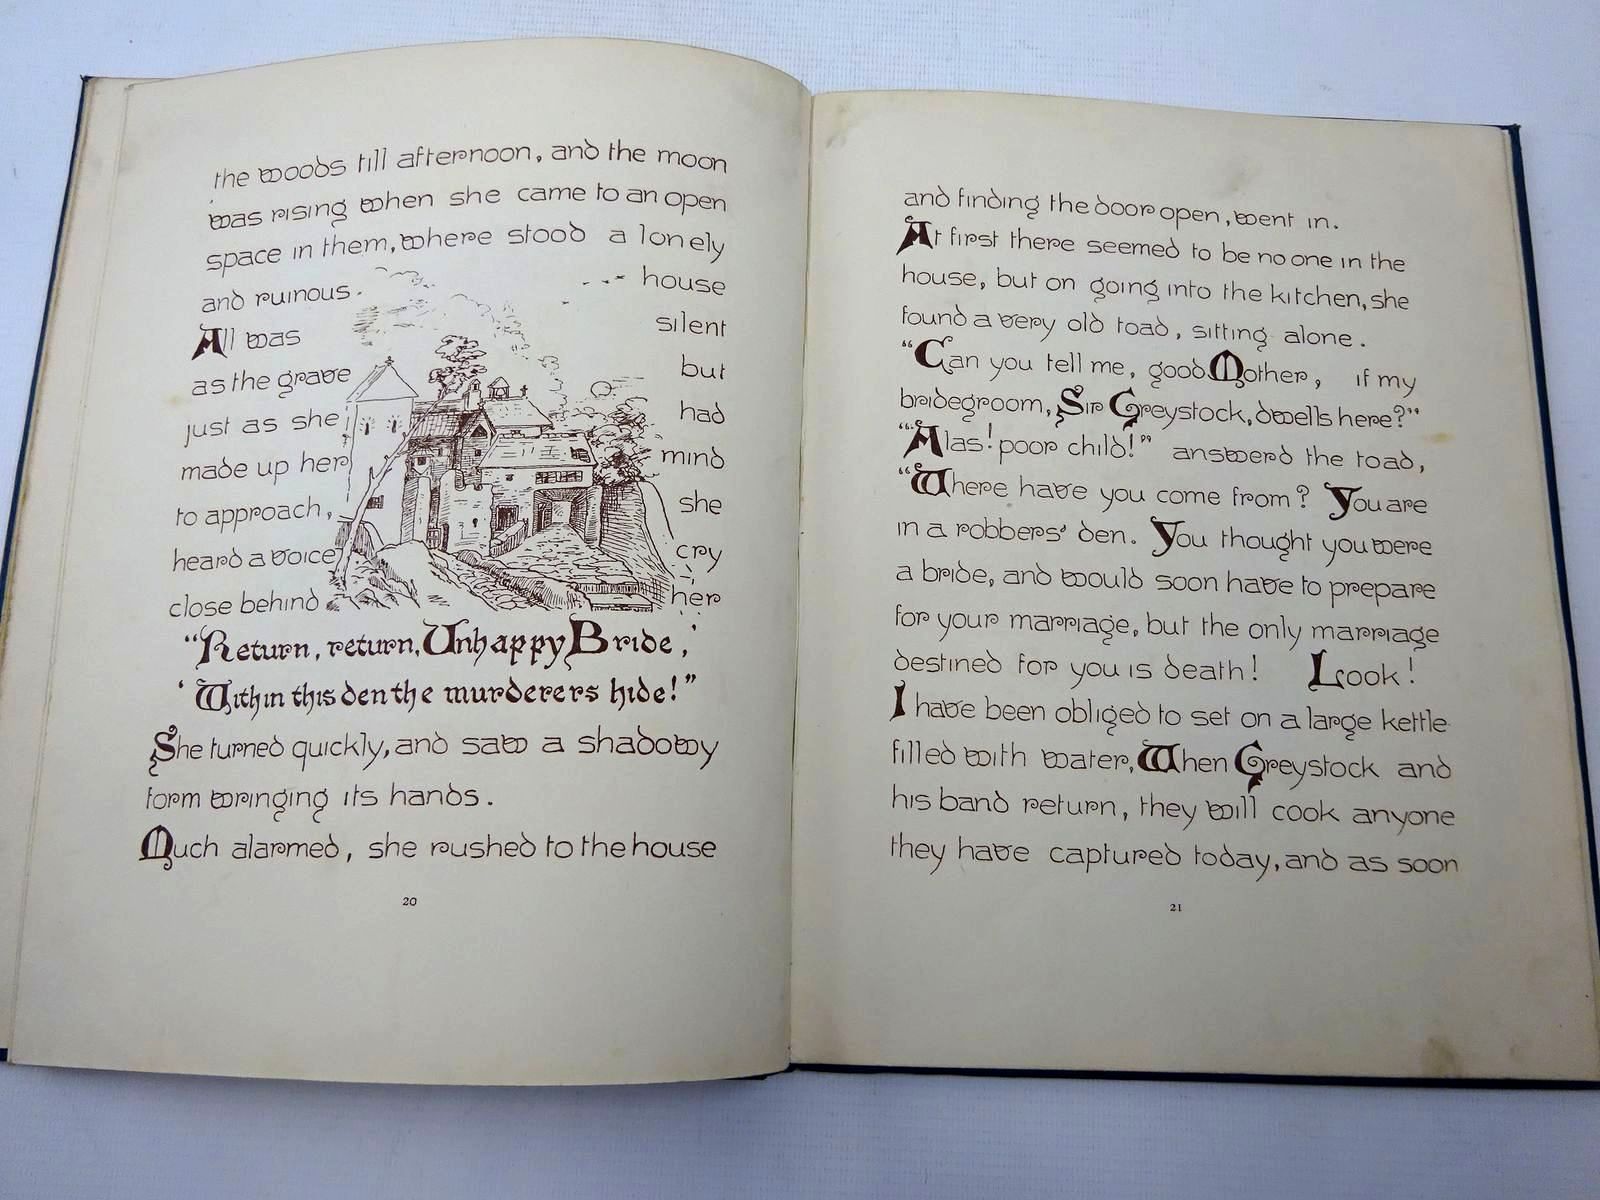 the woods till afternoon, and the moon
was rising when she came to an open
space in them, where stood a lonely
and ruinous house
All was silent
as the grave but
just as she had
made up her mind
to approach, she
heard a voice cry
close behind her
"Return, return, Unhappy Bride,'
'Within this den the murderers hide!"
She turned quickly, and saw a shadowy
form wringing its hands.
Much alarmed, she rushed to the house
20
and finding the door open, went in.
At first there seemed to be no one in the
house, but on going into the kitchen, she
found a very old toad, sitting alone.
"Can you tell me, good Mother, if my
bridegroom, Sir Greystock, dwells here?"
"Alas! poor child!" answerd the toad,
"Where have you come from? You are
in a robbers' den. You thought you were
a bride, and would soon have to prepare
for your marriage, but the only marriage
destined for you is death! Look!
I have been obliged to set on a large kettle
filled with water, When Greystock and
his band return, they will cook anyone
they have captured today, and as soon
21